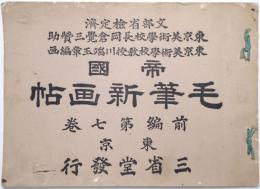 文部省檢定濟
東京美術學校長岡倉覺三賛助
東京美術學校教授川端玉章編画
帝國
毛筆新画帖
前編第七卷
東京
三省堂發行